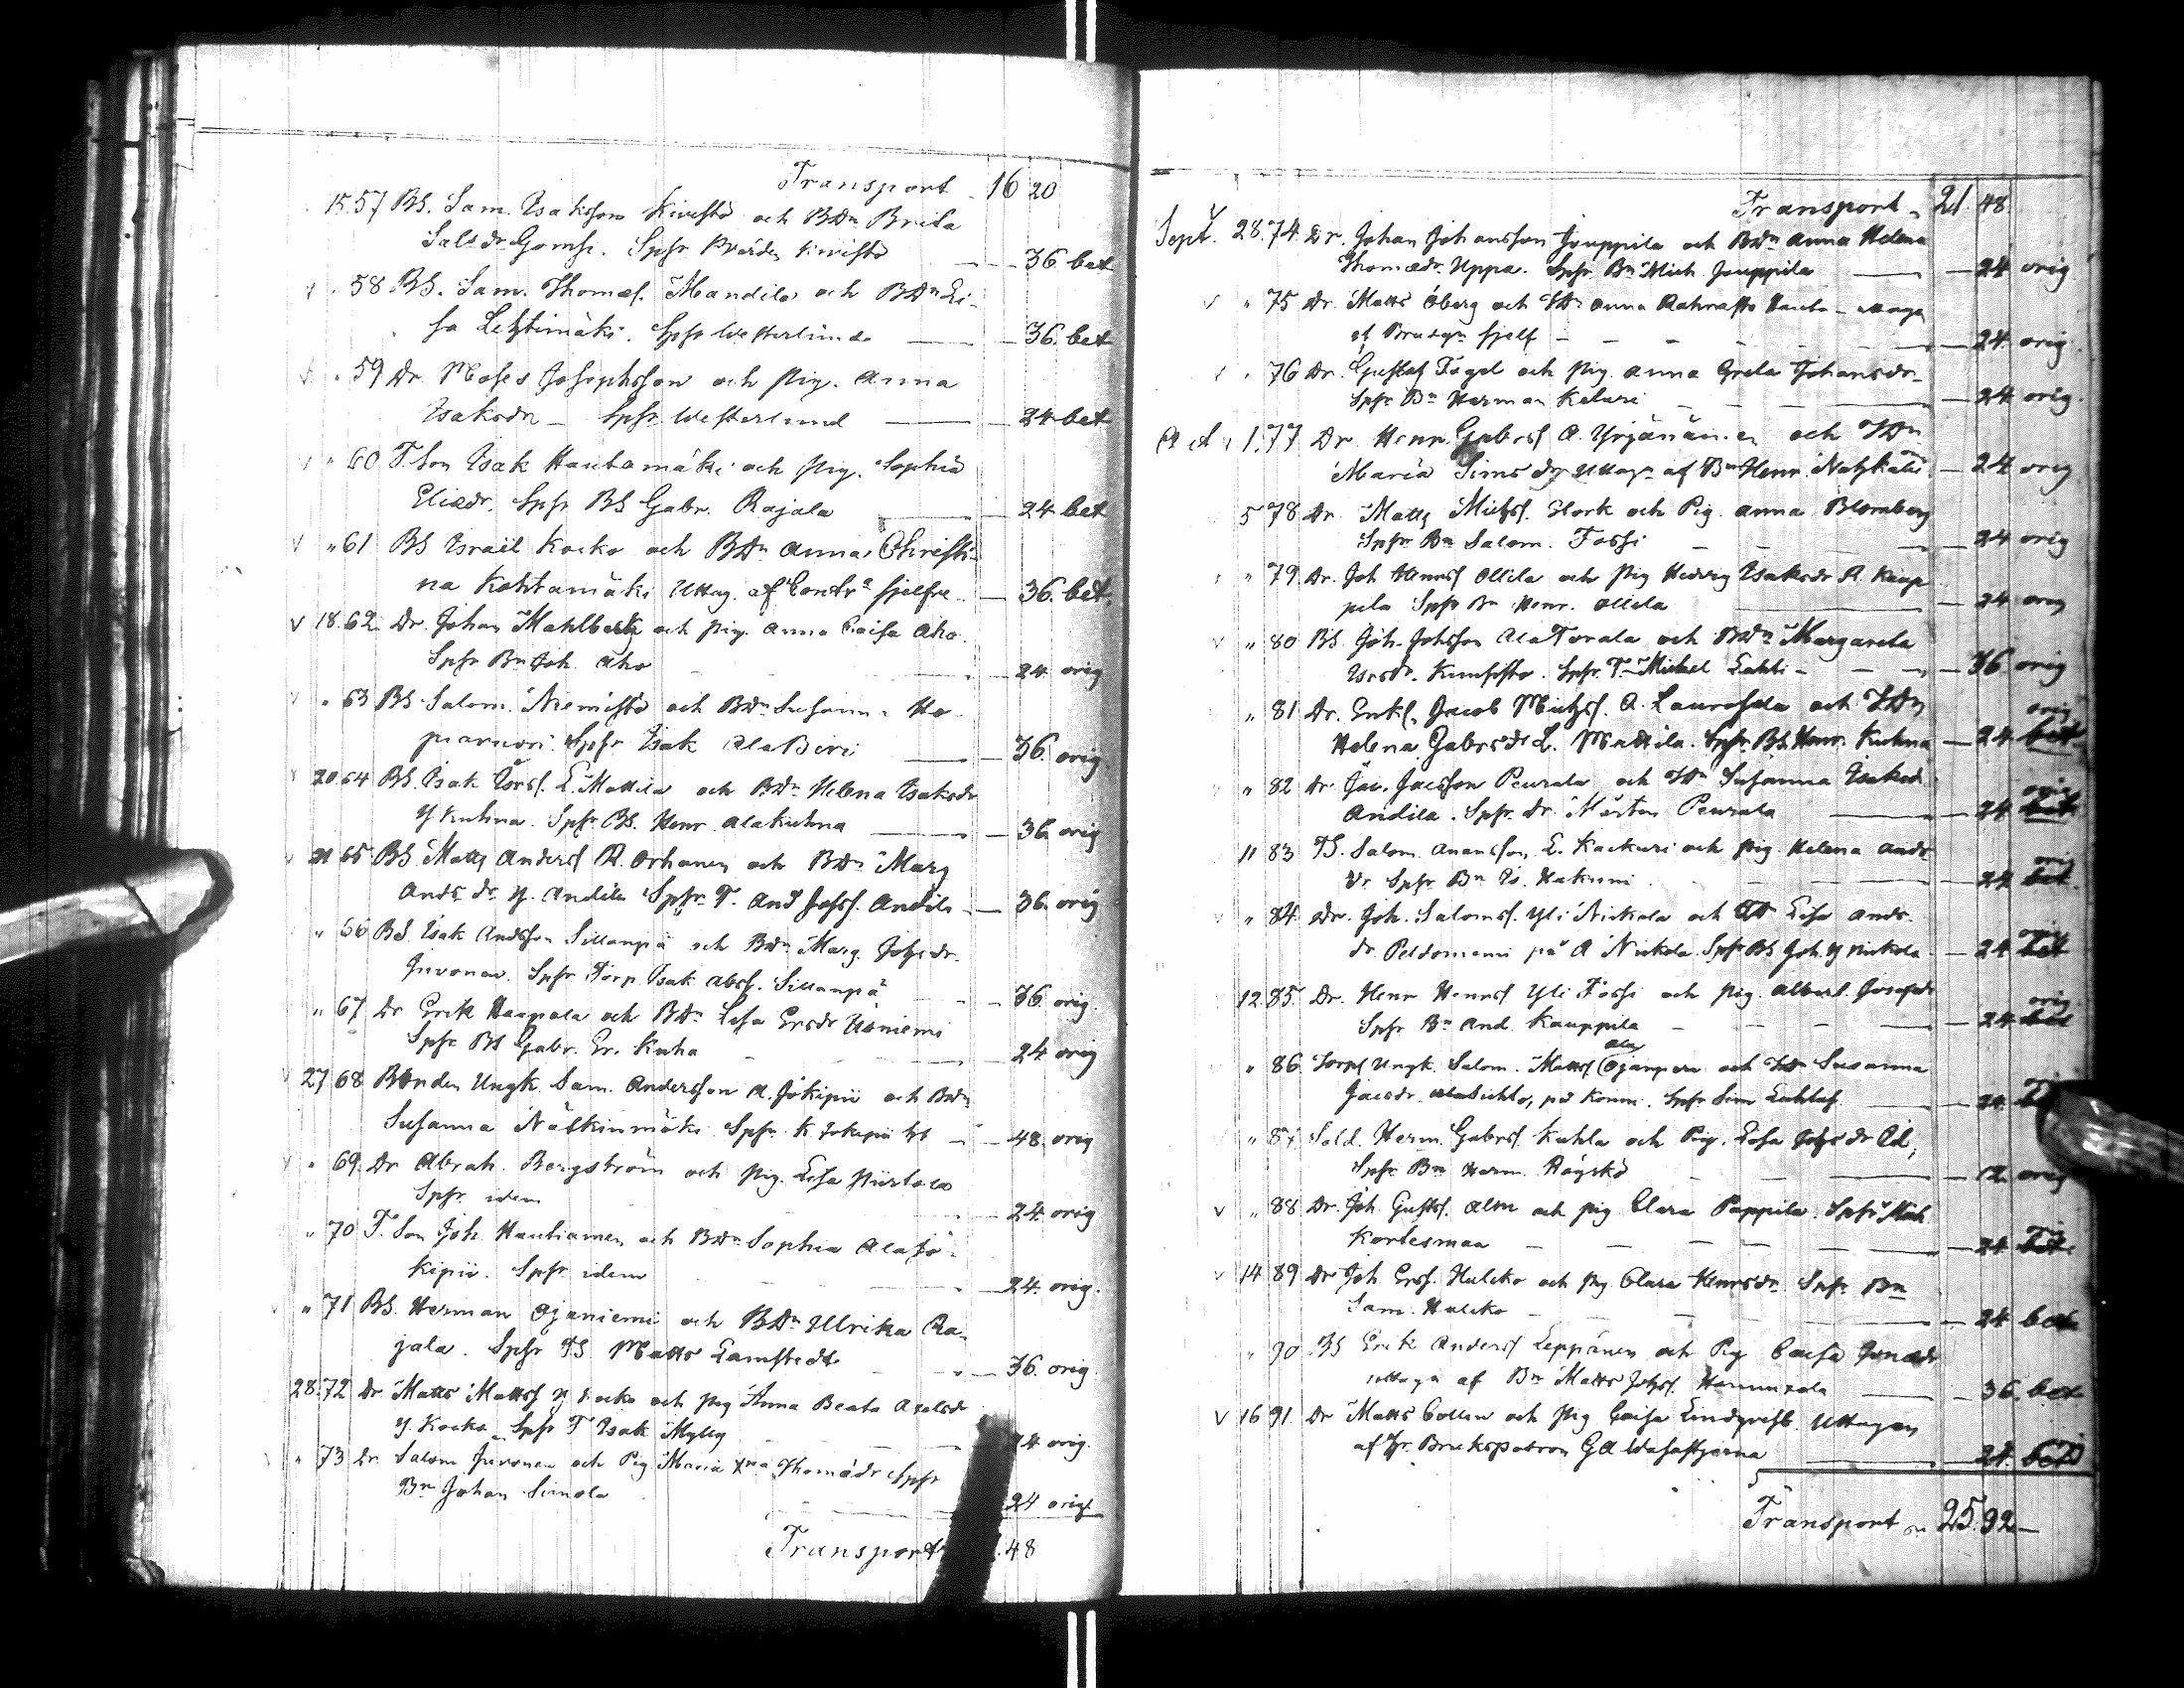 Transport 16 20
15. 57 BS. Sam. Isaksson Kivistö och BDn Brita
Sals dr Gomsi. Spfr Värden Kivistö — 36. bet
v " 58 BS. Sam. Thomas. Mandila och BDn Li-
sa Lehtimäki. Spfr Westerlund — 36. bet
" 59 Dr Moses Josephsson och Pig. Anna
Isaksdr — Spfr Westerlund — 24 bet
v " 60 T. Son Isak Hautamäki och Pig. Sophia
Eliædr. Spfr BS Gabr. Rajala — 24 bet
v " 61 BS Israel Kocko och BDn Anna Christi-
na Kohtamäki Uttag. af Contr. sjelfve — 36. bet.
v 18. 62. Dr. Johan Mahlberg och Pig. Anna Caisa Aho.
Spfr Bn Joh. Aho — 24. orig
v " 63 BS Salom. Niemistö och BDn Susanna Ho-
Spfr Isak AlaBeri — 36. orig.
v 20 64 BS. Isak Isrs. L. Mattila och BDn Helena Isaksdr
Y Kuhna. Spfr BS. Henr. AlaKuhna — 36. orig
v 21 65 BS Matts Anders A. Orhanen och BDn Marg
Ands dr Y. Andila Spfr T. And Johss. Andila — 36. orig
" 66 BS. Isak Andsson Sillanpä och BDn Marg. Johsdr.
Juvonen. Spfr Torp Isak Abrs. Sillanpä — 36. orig.
" 67 Dr Erik Haapala och BDn Lisa Ersdr Uoniemi
Spfr BS Gabr. Er. Kuha — 24 orig
27 68 Bonden Ungk. Sam. Andersson A. Jokipii och BDn
Susanna Nälkinmäki Spfr K Jokipii — 48. orig
v " 69. Dr Abrah. Bergström och Pig. Lisa Piirtola
Spfr idem — 24. orig
" 70 T. Son Joh. Hautianen och BDn Sophia AlaJo-
kipii. Spfr idem — 24. orig.
" 71 BS. Herman Ojaniemi och BDn Ulrika Ra-
jala. Spfr TS. Matts Lamstedt — 36. orig
28. 72 Dr Matts Matts Y Kocko och Pig Anna Beata Axelsdr
Y. Kocko. Spfr T Isak Mylly — 24 orig.
" 73 Dr. Salom Juvonen och Pig Maria Thomædr Spfr
Bn Johan Simola — 24 orig
Transport .48
Transport 21. 48
Sept. 28. 74. Dr. Johan Johansson Jouppila och BDn Anna Helena
Thomædr. Uppa. Spfr. Bn Mich Jouppila — 24 orig
v " 75 Dr. Matts Öberg och
af Brudgn sjelf — 24. orig
" 76 Dr. Gustaf Fogel och Pig. Anna Greta Johansdr
Spfr Bn Herman Keturi — 24 orig.
Oct v 1. 77 Dr Henr. Gabrs A. Yrjänänen och TDn
Maria Simsdr Uttagn af Bn Henr. — 24 orig
5 78 Dr. Matts Michss. Stork och Pig. Anna Blomberg
Spfr Bn Salom. Fossi — 24 orig
" 79. Dr. Joh Henrs Ollila och Pig Hedvig Isaksdr A. Kaup
pila Spfr Bn Henr. Ollila — 24 orig
v " 80 BS. Joh. Johsson AlaTorala och BDn Margareta
Isrsdr. Spfr. T. Michel Lahti — 36 orig
" 81 Dr. Enkl. Jacob Michss. A. Laurosela och TDn orig
Helena Gabrsdr L. Mattila. Spfr BS. Henr. Kuhna — 24 bet
" 82 Dr. Jac. Jacsson Peurala och TDn Susanna Isaksdr orig
Andila. Spfr. Dr. Mårten Peurala — 24 bet
11 83 TS. Salom. Anansson. L. Kackuri och Pig. Helena Ands orig
dr. Spfr Bn Is. Hakuni — 24 bet.
v " 84. Dr. Joh. Saloms. Yli Nickola och Lisa Ands.
dr. Peldoniemi på A Nickola Spfr BS Joh. Y Nickola — 24 bet
12. 85. Dr. Henr Henrs Yli Fossi och Pig. Albert. Josefsdr orig
Spfr Bn And. Kauppila — 24 bet
" 86. Torps Ungk. Salom. Matts Ojanperä och TDn Susanna
Jacsdr. på Komsi. Spfr Sim — 24.
" 87 Sold. Herm. Gabrs. Kuhla och Pig. Lisa Johsdr Öd,
Spfr Bn Herm. Röyskö — 12 orig
v " 88 Dr. Joh. Gusts. Alm och Pig Clara Pappila. Spfr Mich
Kortesmaa — 24 bet
v 14 89 Dr Joh. Ers. Hulcko och Pig Clara Henrsdr Spfr. Bn
Sam. Hulcko — 24 bet
" 90 BS Erik Anders Leppänen och Pig Caisa Jonædr
uttagn af Bn Matts Johs. Hannuxela — 36. bet
v 16 91. Dr Matts Collin och Pig Caisa Lindqvist. Uttagen
af Hr. Brukspatron GA Wasastjerna — 24. bet
Transport 25. 92 —